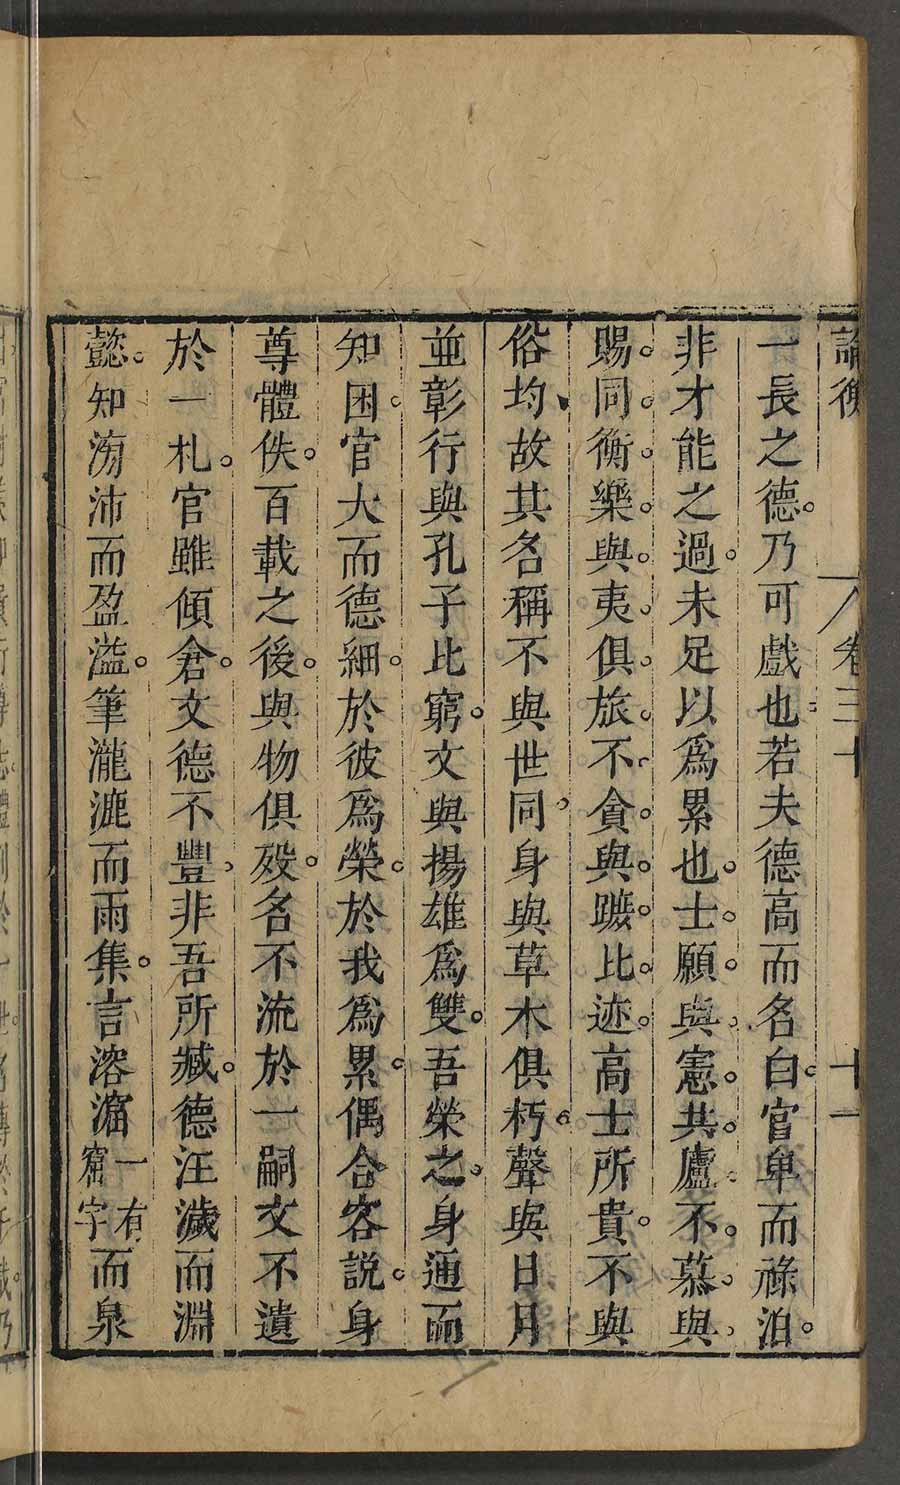 論衡 卷三十 十一
一長之德。乃可戲也。若夫德高而名白。官卑而祿泊。
非才能之過。未足以爲累也。士。願。與。憲。共。廬。不。慕。與。
賜。同。衡。樂。與。夷。俱。旅。不。貪。與。蹠。比。迹。高士所貴。不與
俗均、故其名稱不與世同。身與草木俱朽。聲與日月
並彰行與孔子比窮。文與揚雄爲雙。吾榮之。身通而
知困。官大而德細。於彼爲榮。於我爲累。偶合容說。身
尊體佚。百載之後。與物俱殁。名不流於一嗣文不遺
於一札。官雖傾倉。文德不豐。非吾所臧。德汪濊而淵
懿。知滂沛而盈溢。筆瀧漉而雨集。言溶一有窟字而泉